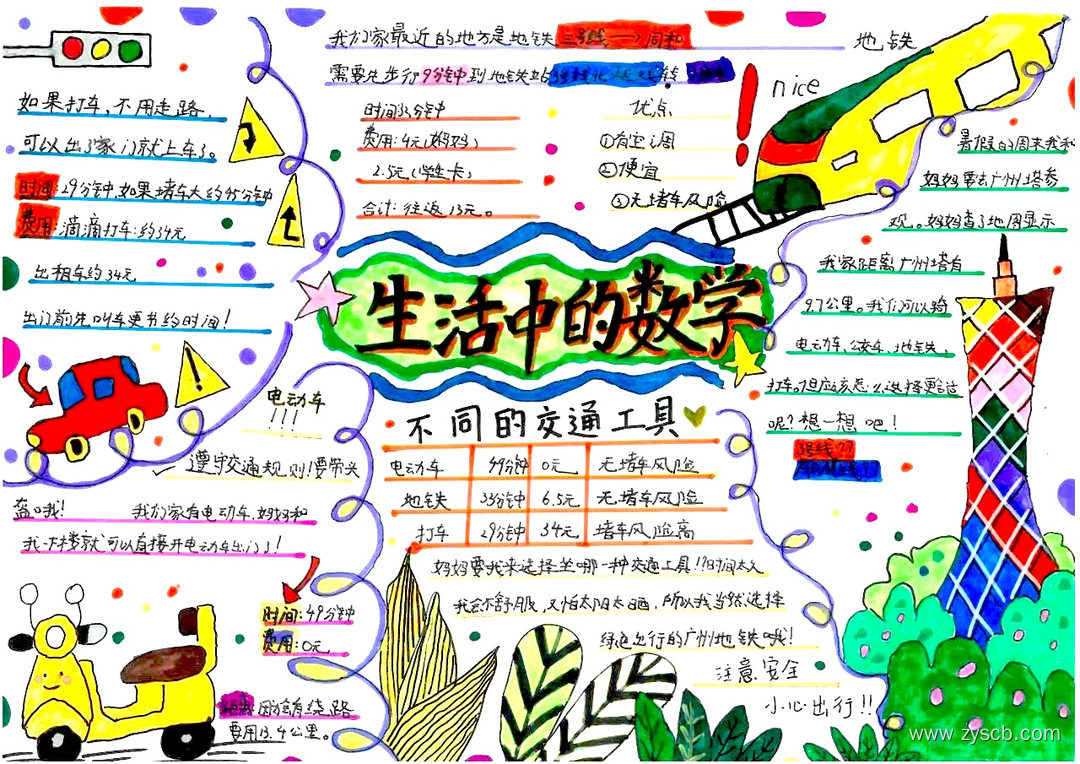 我们家最近的地方是地铁三号线——同和
需要先步行9分钟到地铁站3号线
时间33分钟
费用:4元(妈妈)
2.5元(学生卡)
合计:往返13元。
优点
①有空调
②便宜
③无堵车风险
地铁
nice
如果打车,不用走路,
可以出了家门就上车了。
时间:29分钟,如果堵车大约45分钟
费用:滴滴打车:约34元
出租车约34元
出门前先叫车更节约时间!
暑假的周末我和
妈妈要去广州塔参
观。妈妈查了地图显示
我家距离广州塔有
9.7公里。我们可以骑
电动车、公交车、地铁、
打车。但应该怎么选择更合适
呢?想一想吧!
生活中的数学
电动车
!!!
遵守交通规则!要带头
盔哦! 我们家有电动车,妈妈和
我下楼就可以直接开电动车出门了!
时间:49分钟
费用:0元
因会有绕路
费用13.4公里。
不同的交通工具
电动车 49分钟 0元 无堵车风险
地铁 33分钟 6.5元 无堵车风险
打车 29分钟 34元 堵车风险高
妈妈要我来选择坐哪一种交通工具!!?时间太久
我会不舒服,又怕太阳太晒,所以我当然选择
绿色出行的广州地铁哦!
注意安全
小心出行!!
www.zyscb.com